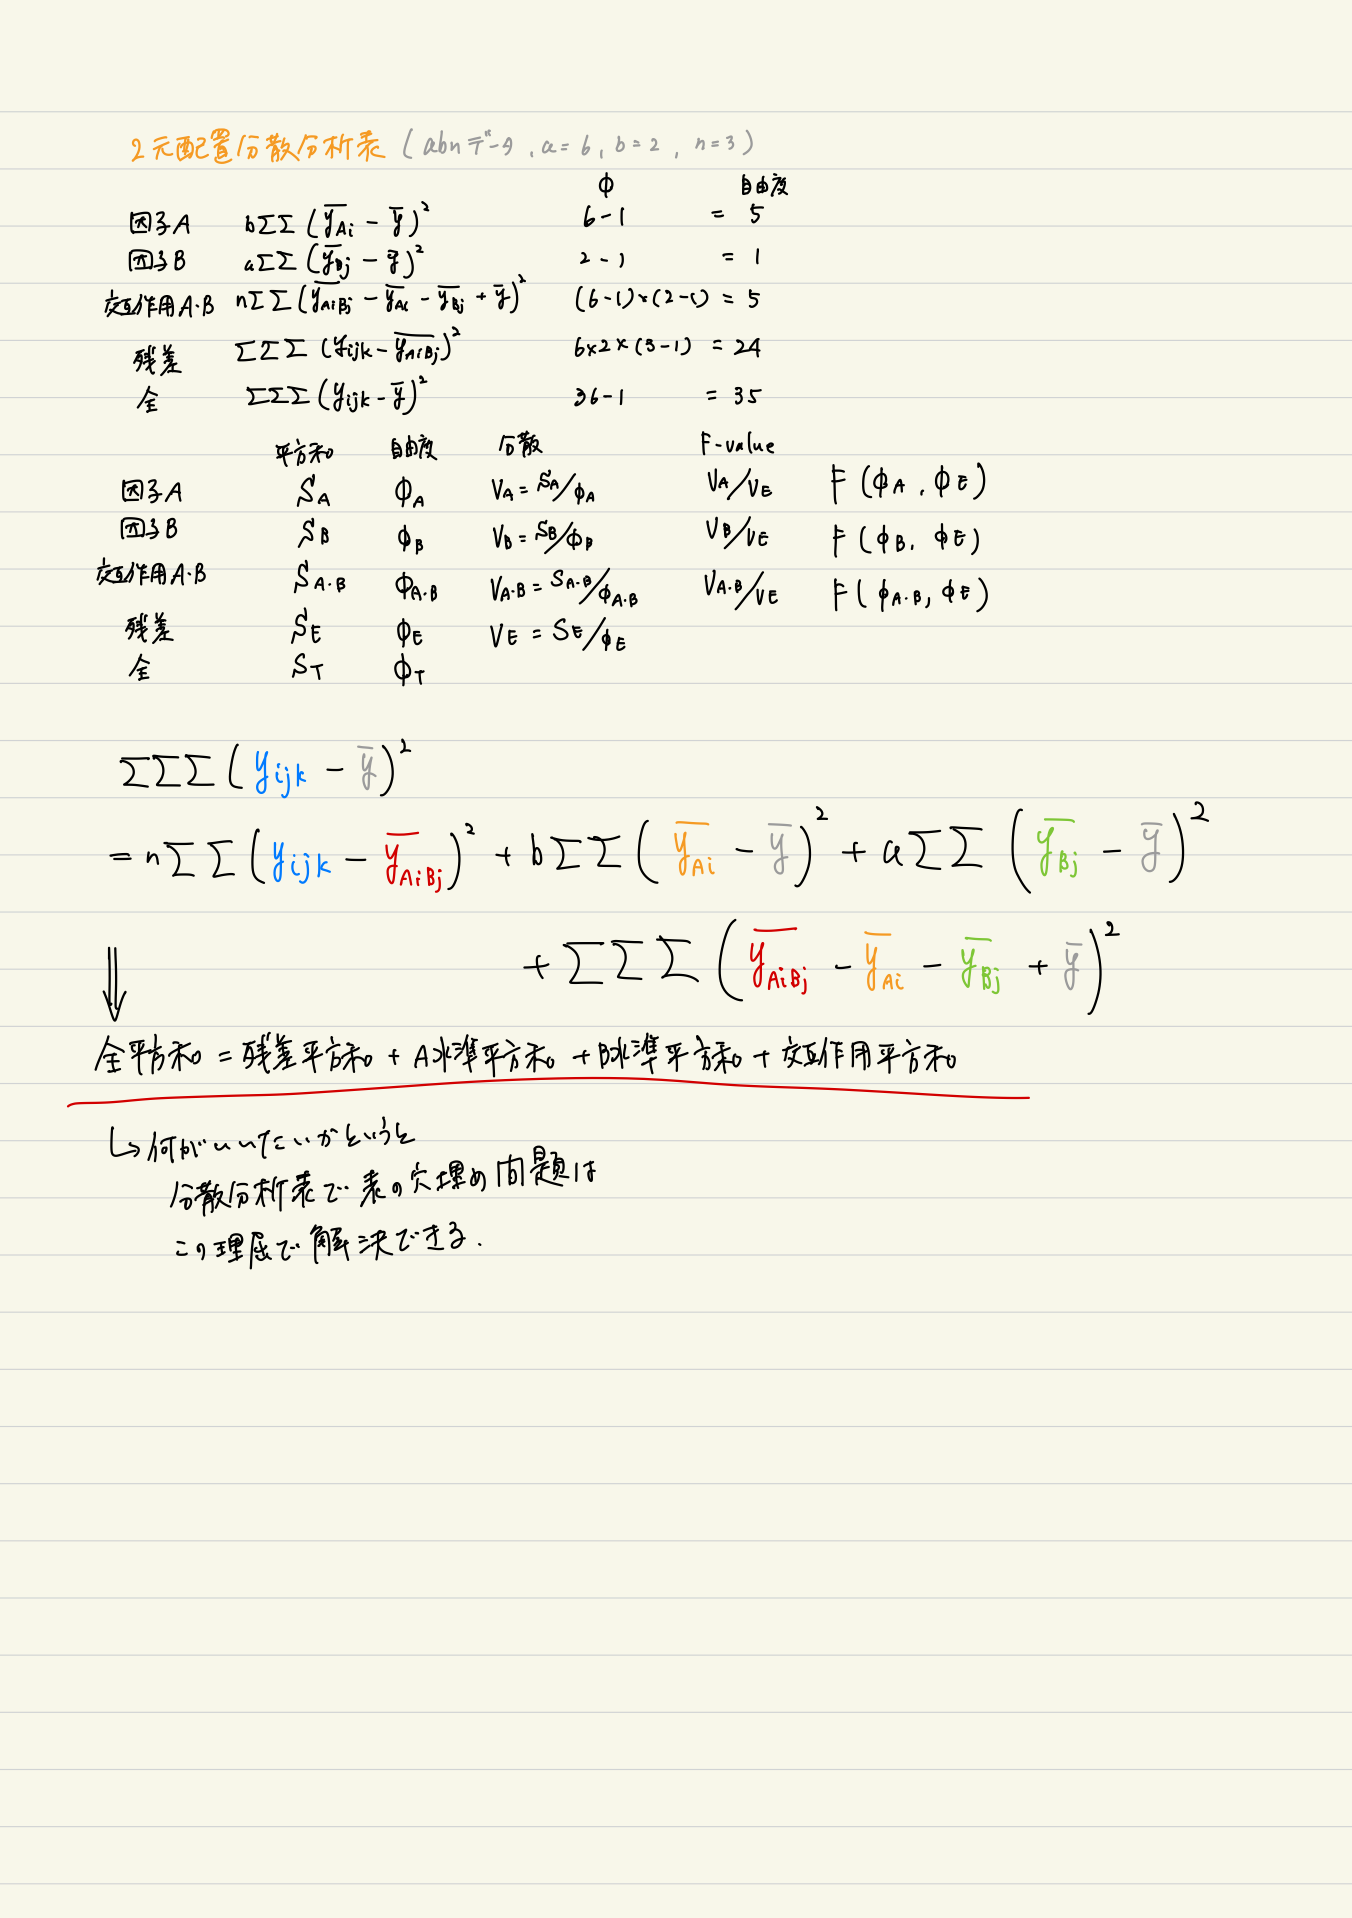 2元配置分散分析表 (abnデータ, a=6, b=2, n=3)
φ 自由度
因子A bΣΣ(y̅Ai - y̅)² 6-1 = 5
因子B aΣΣ(y̅Bj - y̅)² 2-1 = 1
交互作用A·B nΣΣ(y̅AiBj - y̅Ai - y̅Bj + y̅)² (6-1)×(2-1) = 5
残差 ΣΣΣ(yijk - y̅AiBj)² 6×2×(3-1) = 24
全 ΣΣΣ(yijk - y̅)² 36-1 = 35
平方和 自由度 分散 F-value
因子A SA φA VA = SA/φA VA/VE F(φA, φE)
因子B SB φB VB = SB/φB VB/VE F(φB, φE)
交互作用A·B SA·B φA·B VA·B = SA·B/φA·B VA·B/VE F(φA·B, φE)
残差 SE φE VE = SE/φE
全 ST φT
ΣΣΣ(yijk - y̅)²
= nΣΣ(yijk - y̅AiBj)² + bΣΣ(y̅Ai - y̅)² + aΣΣ(y̅Bj - y̅)²
+ ΣΣΣ(y̅AiBj - y̅Ai - y̅Bj + y̅)²
⇓
全平方和 = 残差平方和 + A水準平方和 + B水準平方和 + 交互作用平方和
↳ 何がいいたいかというと
分散分析表で表の穴埋め問題は
この理屈で解決できる.